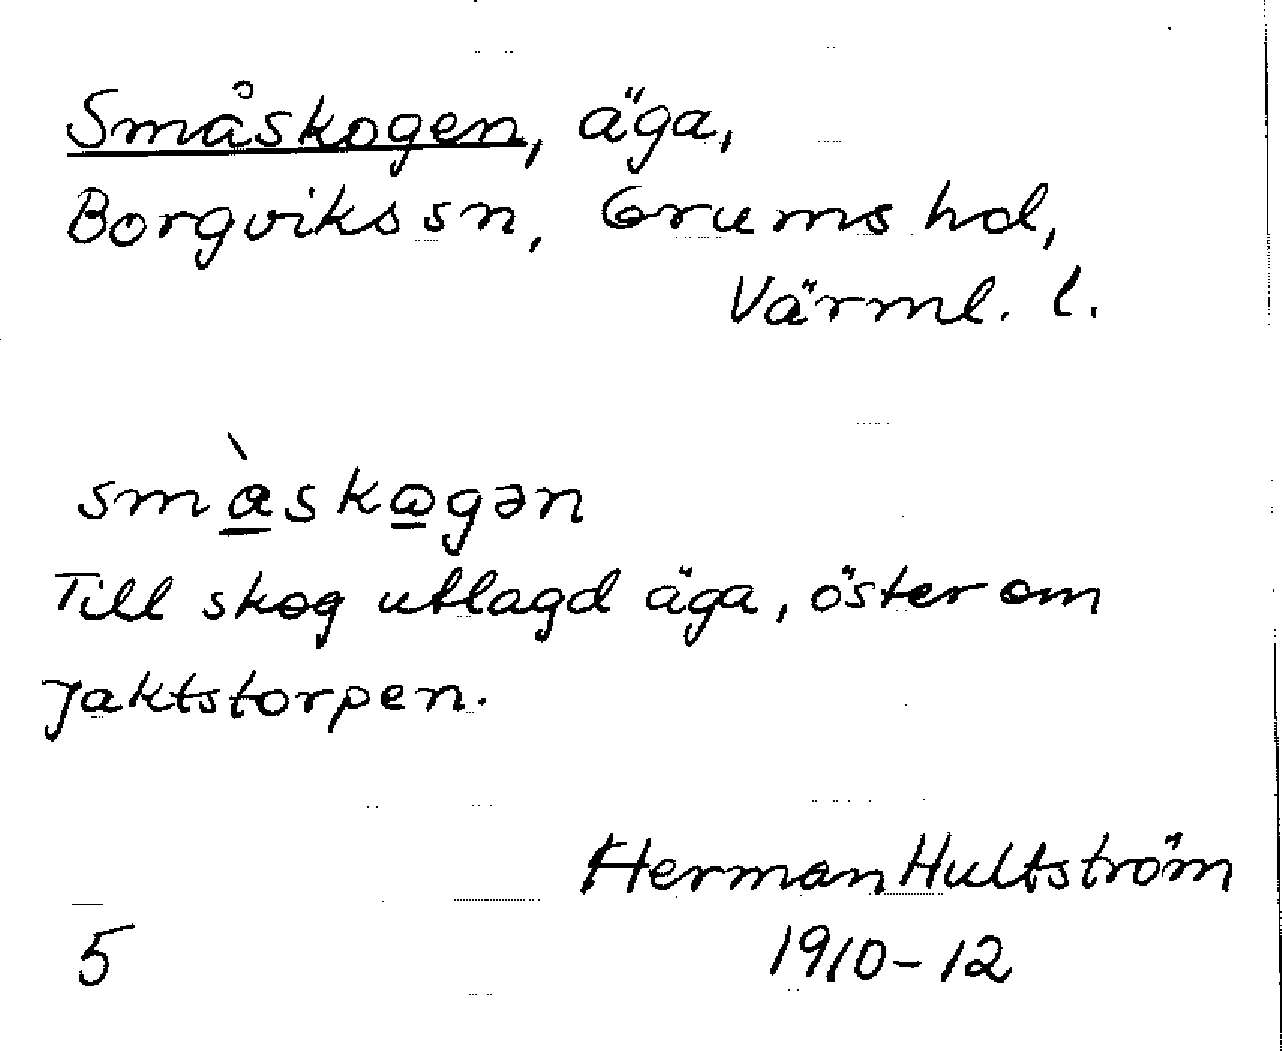 Småskogen, äga,
Borgviks sn, Grums hd,
Värml. l.
smàskωgən
Till skog utlagd äga, öster om
Jaktstorpen.
Herman Hultström
5 1910-12